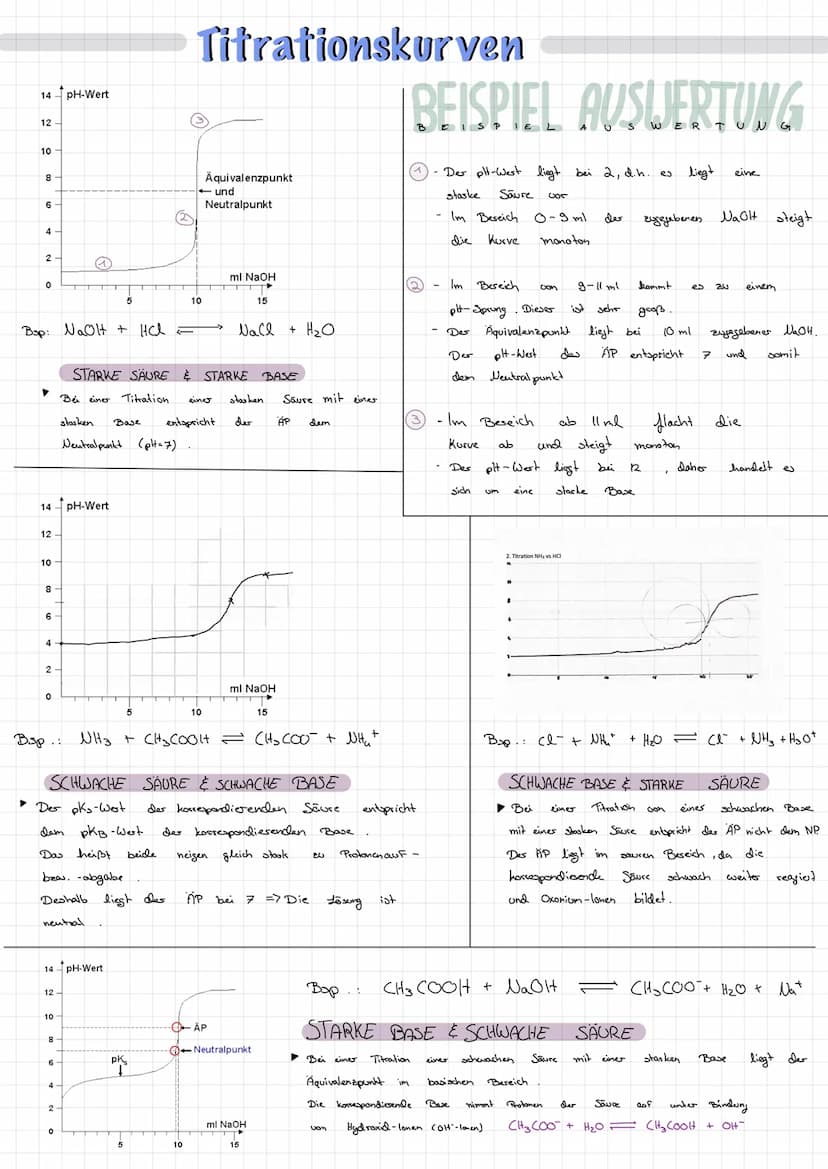 Titrationskurven
14 pH-Wert
12
10
8
6
4
2
0
5
10
15
ml NaOH
Äquivalenzpunkt
und
Neutralpunkt
1
2
3
Bsp: NaOH + HCl ⇌ NaCl + H₂O
STARKE SÄURE & STARKE BASE
Bei einer Titration einer starken Säure mit einer
starken Base entspricht der ÄP dem
Neutralpunkt (pH=7).
BEISPIEL AUSWERTUNG
BEISPIEL AUSWERTUNG
1 - Der pH-Wert liegt bei 2, d.h. es liegt eine
starke Säure vor
- Im Bereich 0-9 ml der zugegebenen NaOH steigt
die Kurve monoton
2 - Im Bereich von 9-11 ml kommt es zu einem
pH-Sprung. Dieser ist sehr groß.
- Der Äquivalenzpunkt liegt bei 10 ml zugegebener NaOH.
Der pH-Wert des ÄP entspricht 7 und somit
dem Neutralpunkt
3 - Im Bereich ab 11 ml flacht die
Kurve ab und steigt monoton
- Der pH-Wert liegt bei 12, daher handelt es
sich um eine starke Base
14 pH-Wert
12
10
8
6
4
2
0
5
10
15
ml NaOH
Bsp.: NH₃ + CH₃COOH ⇌ CH₃COO⁻ + NH₄⁺
SCHWACHE SÄURE & SCHWACHE BASE
Der pKs-Wert der korrespondierenden Säure entspricht
dem pKB-Wert der korrespondierenden Base.
Das heißt beide neigen gleich stark zu Protonenauf-
bzw. -abgabe.
Deshalb liegt der ÄP bei 7 => Die Lösung ist
neutral.
2. Titration NH₃ vs HCl
Bsp.: Cl⁻ + NH₄⁺ + H₂O ⇌ Cl⁻ + NH₃ + H₃O⁺
SCHWACHE BASE & STARKE SÄURE
Bei einer Titration von einer schwachen Base
mit einer starken Säure entspricht der ÄP nicht dem NP.
Der ÄP liegt im sauren Bereich, da die
korrespondierende Säure schwach weiter reagiert
und Oxonium-Ionen bildet.
14 pH-Wert
12
10
8
6
4
2
0
5
10
15
ml NaOH
pKs
ÄP
Neutralpunkt
Bsp.: CH₃COOH + NaOH ⇌ CH₃COO⁻ + H₂O + Na⁺
STARKE BASE & SCHWACHE SÄURE
Bei einer Titration einer schwachen Säure mit einer starken Base liegt der
Äquivalenzpunkt im basischen Bereich.
Die korrespondierende Base nimmt Protonen der Säure auf unter Bindung
von Hydroxid-Ionen (OH⁻-Ionen) CH₃COO⁻ + H₂O ⇌ CH₃COOH + OH⁻